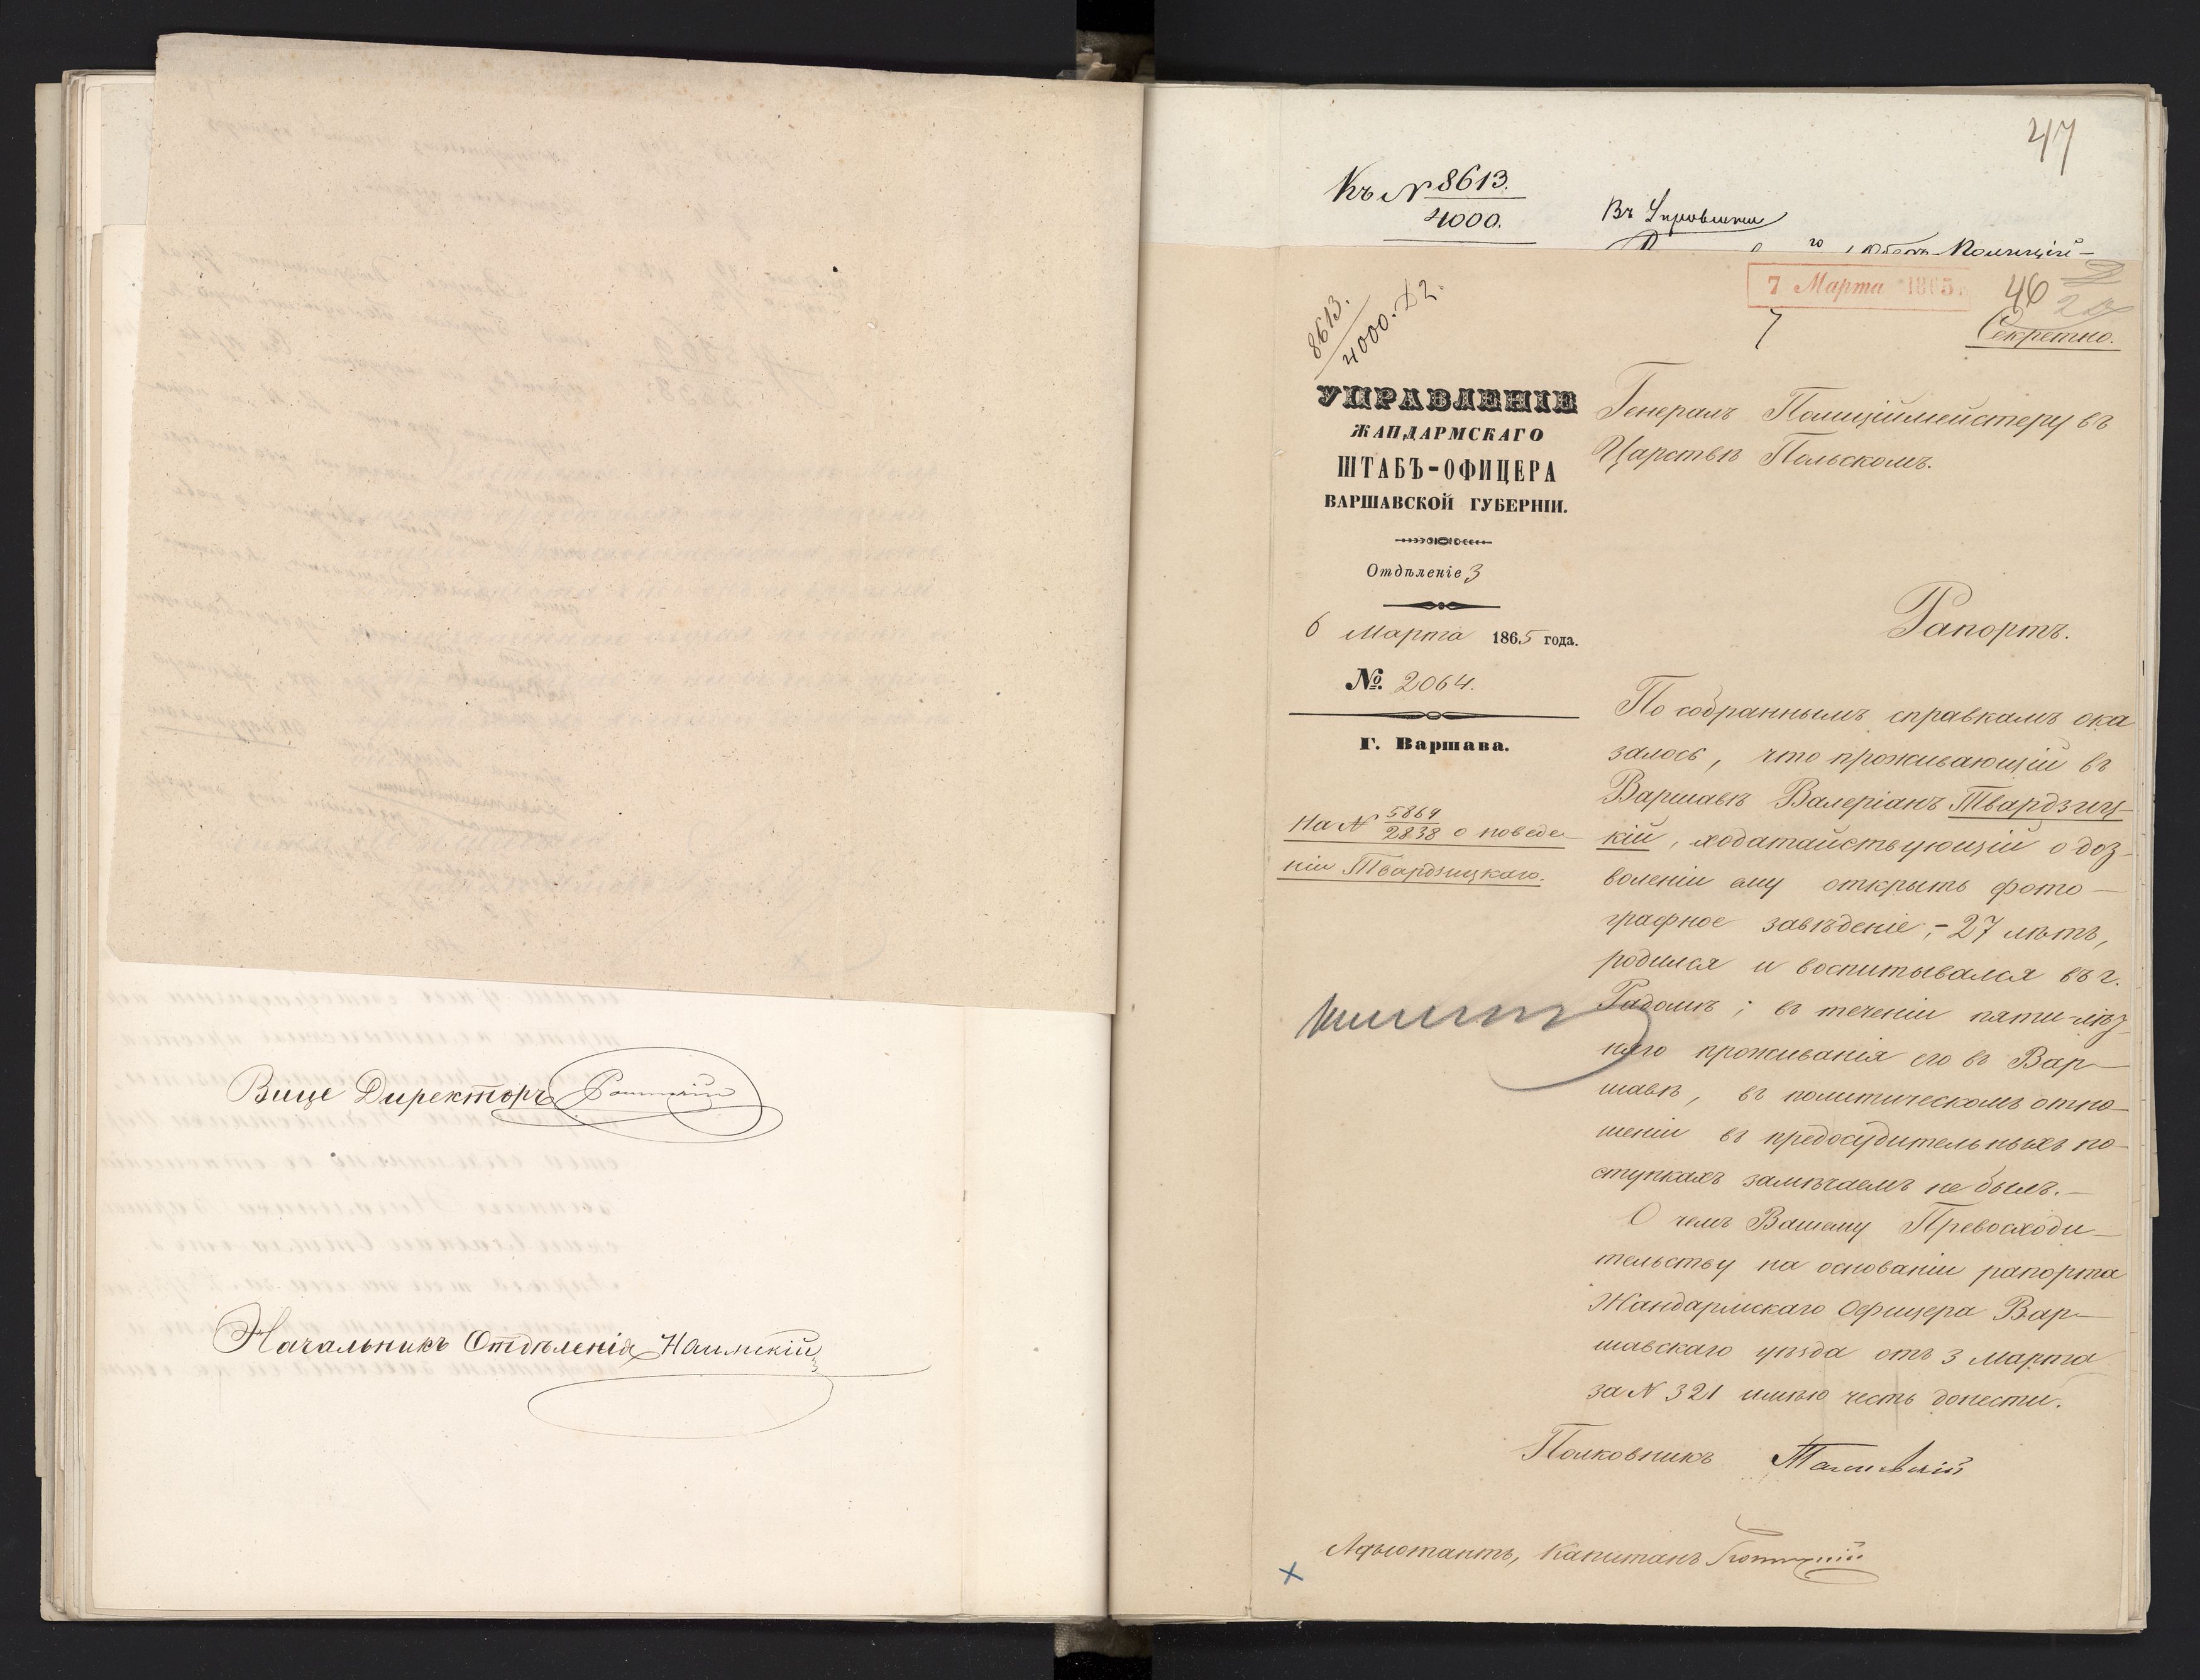 Вице Директоръ
Начальникъ Отдѣленія
47
Къ № 8613.
4000.
Въ Управленіе
7 Марта 1865
46
7
Секретно.
8613.
4000. Д2.
УПРАВЛЕНІЕ
ЖАНДАРМСКАГО
ШТАБЪ-ОФИЦЕРА
ВАРШАВСКОЙ ГУБЕРНІИ.
Отдѣленіе 3
6 Марта 1865 года.
№. 2064.
Г. Варшава.
На № 5864
2838 о поведе-
ніи Твардзицкаго.
Генералъ Полиціймейстеру въ
Царствѣ Польскомъ.
Рапортъ.
По собраннымъ справкамъ ока
залось, что проживающій въ
Варшавѣ Валеріанъ Твардзиц-
кій, ходатайствующій о доз-
воленіи ему открыть фото-
графное завѣденіе, - 27 лѣтъ,
родился и воспитывался въ г.
Радомѣ; въ теченіи пяти-лѣт-
няго проживанія его въ Вар-
шавѣ, въ политическомъ отно-
шеніи въ предосудительныхъ по-
ступкахъ замѣчаемъ не былъ.-
О чемъ Вашему Превосходи-
тельству на основаніи рапорта
Жандармскаго Офицера Вар-
шавскаго уѣзда отъ 3 Марта
за № 321 имѣю честь донести.
Полковникъ
Адъютантъ, Капитанъ